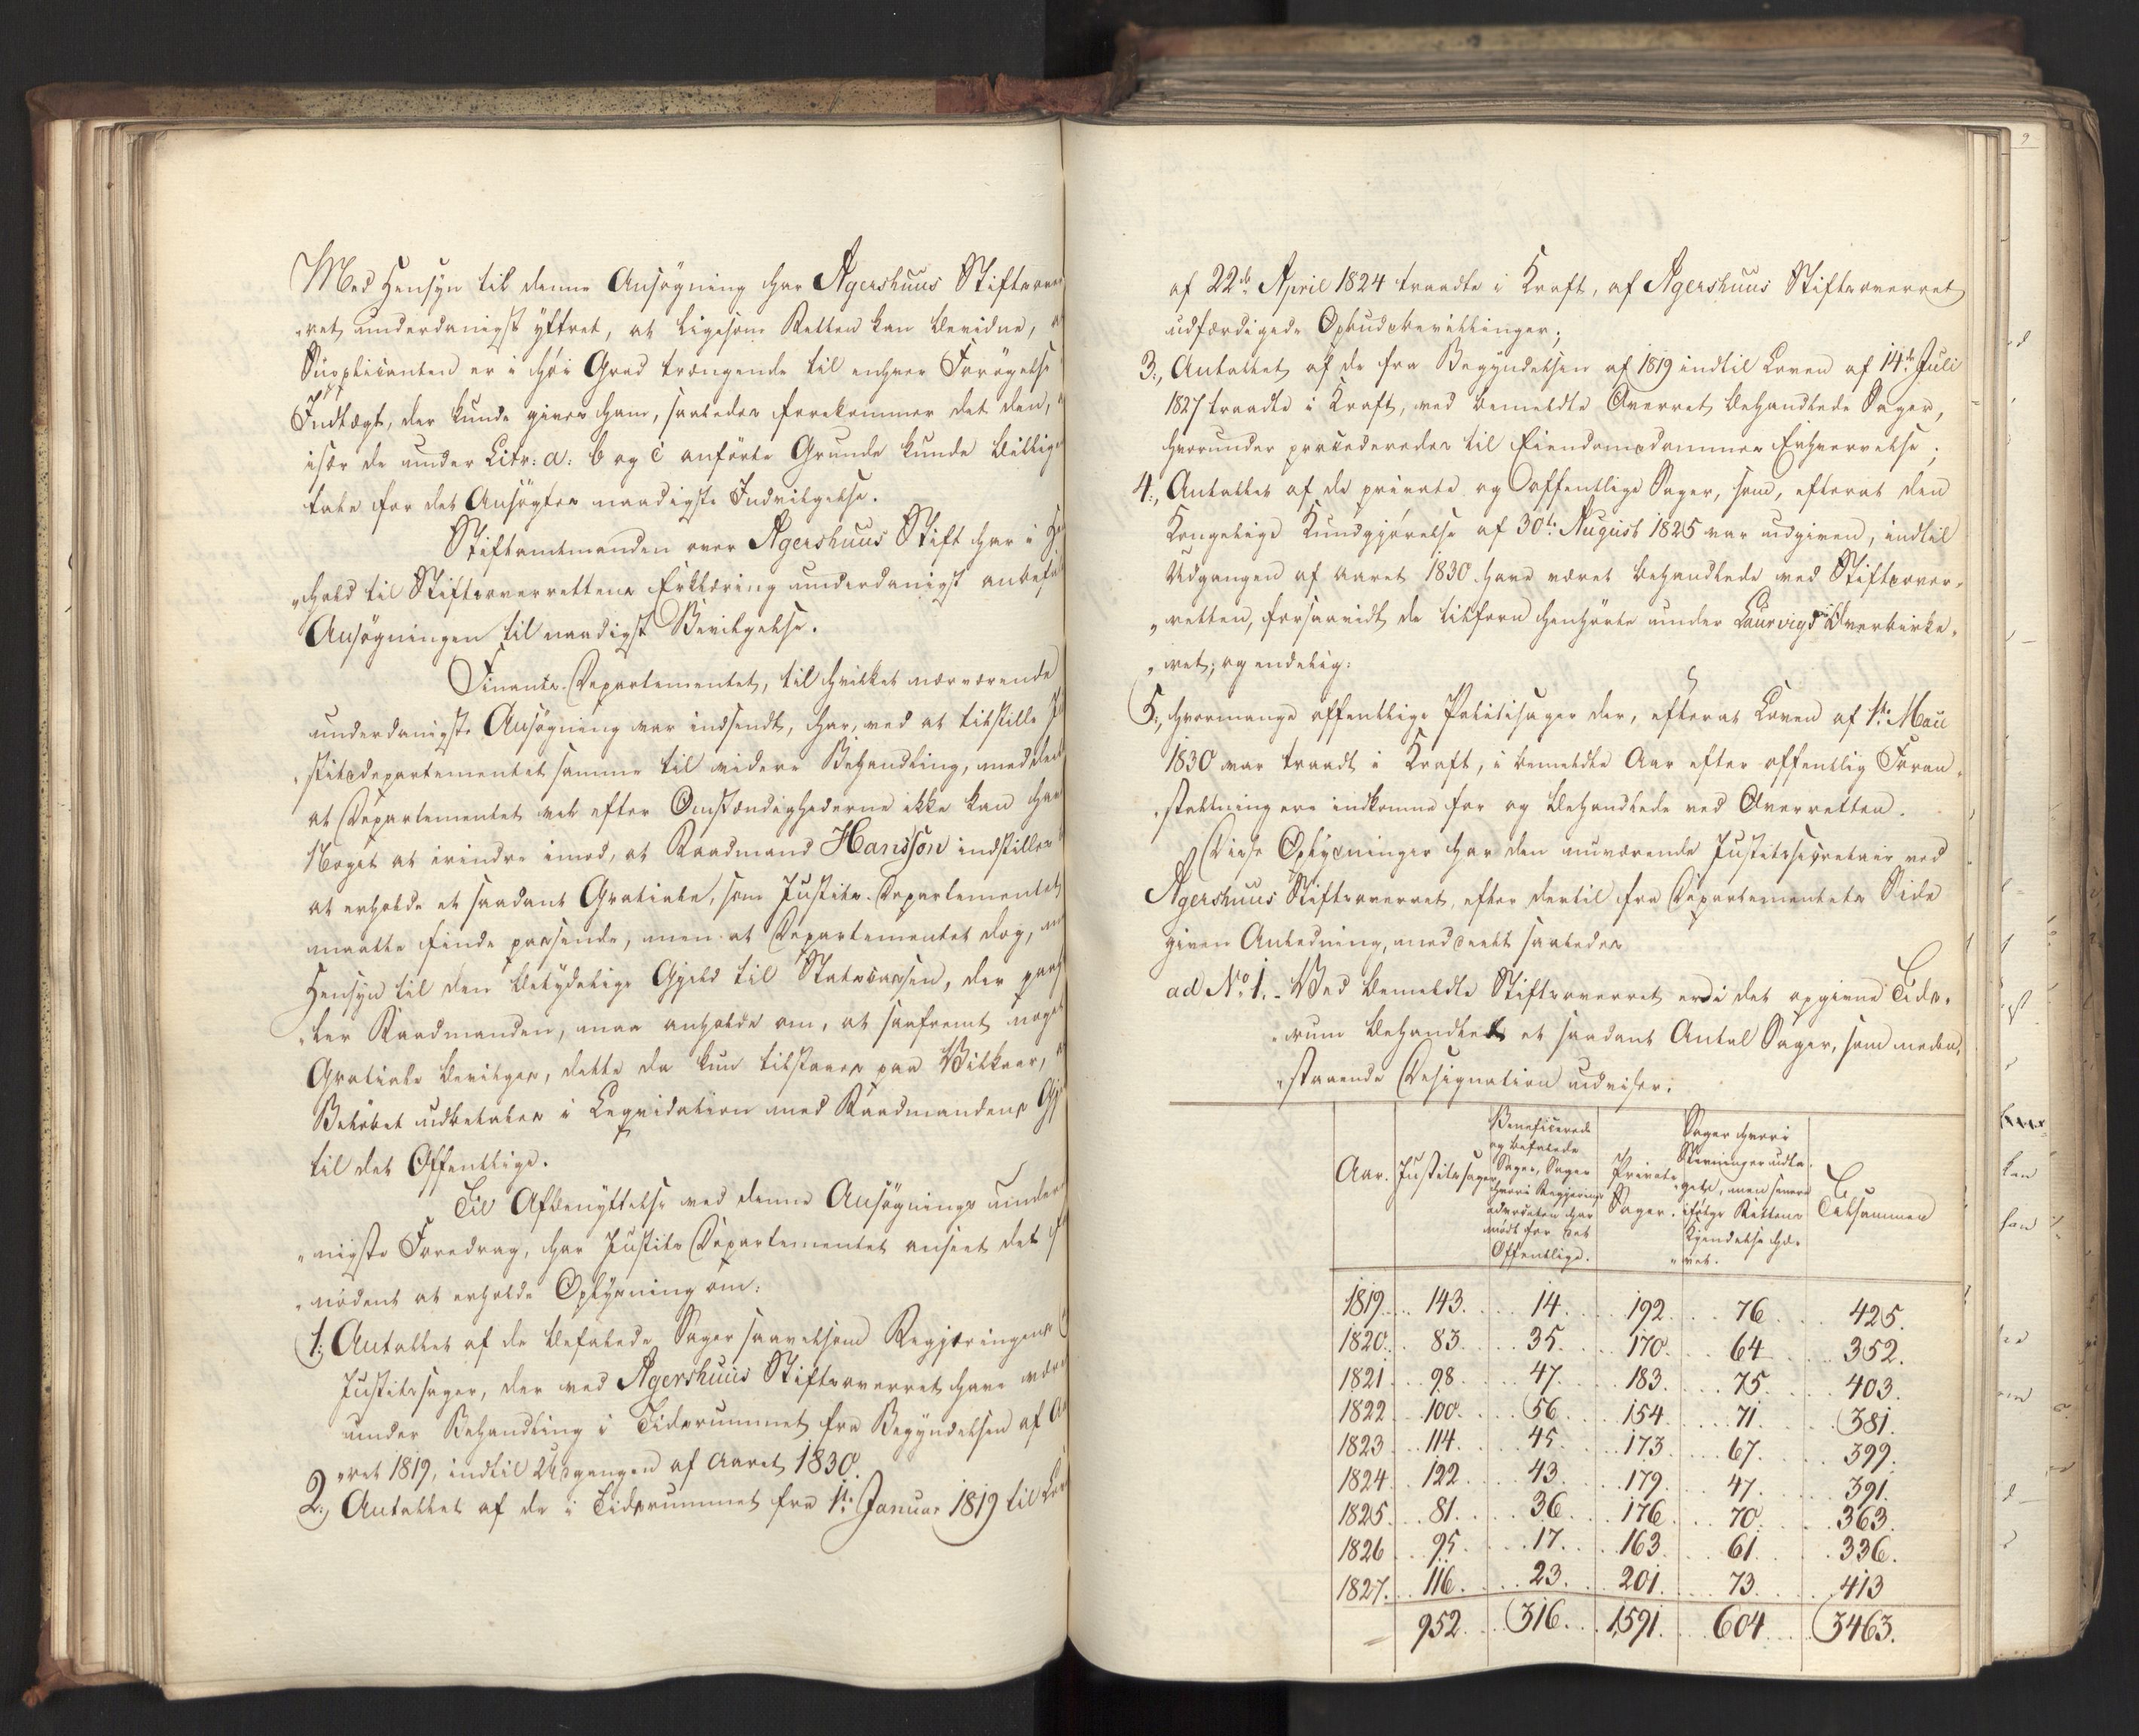 Med Hensyn til denne Ansøgning har Agershuus Stiftsover
„ret underdanigst yttret, at ligesom Retten kan bevidne, at
Supplicanten er i høi Grad trængende til enhver Forøgelse i
Indtægt, der kunde gives ham, saaledes forekommer det den, at
især de under Litr: a: b og c anførte Grunde kunde billigen
tale for det Ansøgtes naadigste Indvilgelse.
Stiftamtmanden over Agershuus Stift har i Hen
„hold til Stiftsoverrettens Erklæring underdanigst anbefalet
Ansøgningen til naadigst Bevilgelse.
Finants-Departementet, til hvilket nærværende
underdanigste Ansøgning var indsendt, har, ved at tilstille Ju
„stitsdepartementet samme til videre Behandling, meddelt
at Departementet vel efter Omstændighederne ikke kan have
Noget at erindre imod, at Raadmand Hansson indstilles til
at erholde et saadant Gratiale, som Justits-Departementet
maatte finde passende, men at Departementet dog, med
Hensyn til den betydelige Gjeld til Statscassen, der paahvi
„ler Raadmanden, maa anholde om, at saafremt noget
Gratiale bevilges, dette da kun tilstaaes paa Vilkaar, at
Beløbet udbetales i Liqvidation med Raadmandens Gjeld
til det Offentlige.
Til Afbenyttelse ved denne Ansøgnings underda
„nigste Foredrag, har Justits Departementet anseet det for
„nødent at erholde Oplysning om:
1., Antallet af de befalede Sager saavelsom Regjeringens
Justitssager, der ved Agershuus Stiftsoverret have været
under Behandling i Tidsrummet fra Begyndelsen af Aa
„ret 1819, indtil Udgangen af Aaret 1830.
2., Antallet af de i Tidsrummet fra 1ste Januar 1819 til Lov
af 22de April 1824 traadte i Kraft, af Agershuus Stiftsoverret
udfærdigede Opbudsbevillinger;
3., Antallet af de fra Begyndelsen af 1819 indtil Loven af 14de Juli
1827 traadte i Kraft, ved bemeldte Overret behandlede Sager,
hvorunder procederedes til Eiendomsdommes Erhvervelse;
4., Antallet af de private og offentlige Sager, som, efterat den
Kongelige Kundgjørelse af 30te August 1825 var udgiven, indtil
Udgangen af Aaret 1830 have været behandlede ved Stiftsover„
„retten, forsaavidt de tilforn henhørte under Laurvigs Overbirke„
„ret; og endelig:
5., hvormange offentlige Politisager der, efterat Loven af 1ste Maii
1830 var traadt i Kraft, i bemeldte Aar efter offentlig Foran„
„staltning ere indkomne for og behandlede ved Overretten.
Disse Oplysninger har den nuværende Justitssecretair ved
Agershuus Stiftsoverret, efter dertil fra Departementets Side
given Anledning, meddeelt saaledes
ad No 1. - Ved bemeldte Stiftsoverret er i det opgivne Tids„
„rum behandlet et saadant Antal Sager, som neden„
„staaende Designation udviser.
Aar. Justitssager Beneficerede og befalede Sager, Sager hvori Regjerings advocaten har mødt for det Offentlige. Private Sager. Sager hvori Stevninger udta„gets, men senere ifølge Rettens Kjendelse hæ„vet. Tilsammen
1819 143. 14. 192. 76. 425.
1820. 83. 35. 170. 64 352.
1821 98. 47. 183. 75. 403.
1822 100. 56. 154. 71. 381.
1823 114. 45. 173. 67. 399.
1824. 122. 43. 179. 47. 391.
1825. 81. 36. 176. 70. 363.
1826 95. 17. 163. 61. 336.
1827. 116. 23. 201. 73. 413
952. 316. 1,591. 604. 3463.